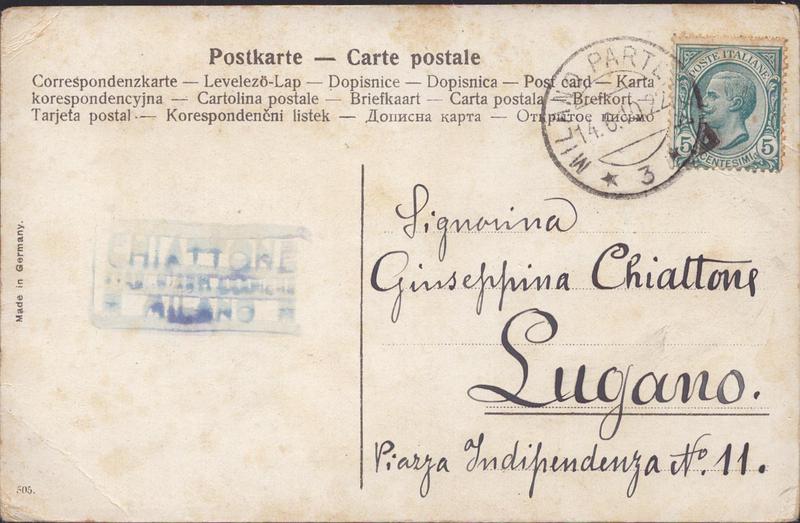 Postkarte — Carte postale
Correspondenzkarte — Levelező-Lap — Dopisnice — Dopisnica — Post card — Karta
korespondencyjna — Cartolina postale — Briefkaart — Carta postala — Brefkort —
Tarjeta postal — Korespondenční listek — Дописна карта — Открытое письмо
MILANO PARTENZA
14.6.
3
POSTE ITALIANE
5 5
CENTESIMI
Signorina
Giuseppina Chiattone
Lugano.
Piazza Indipendenza No. 11.
CHIATTONE
MILANO
Made in Germany.
505.